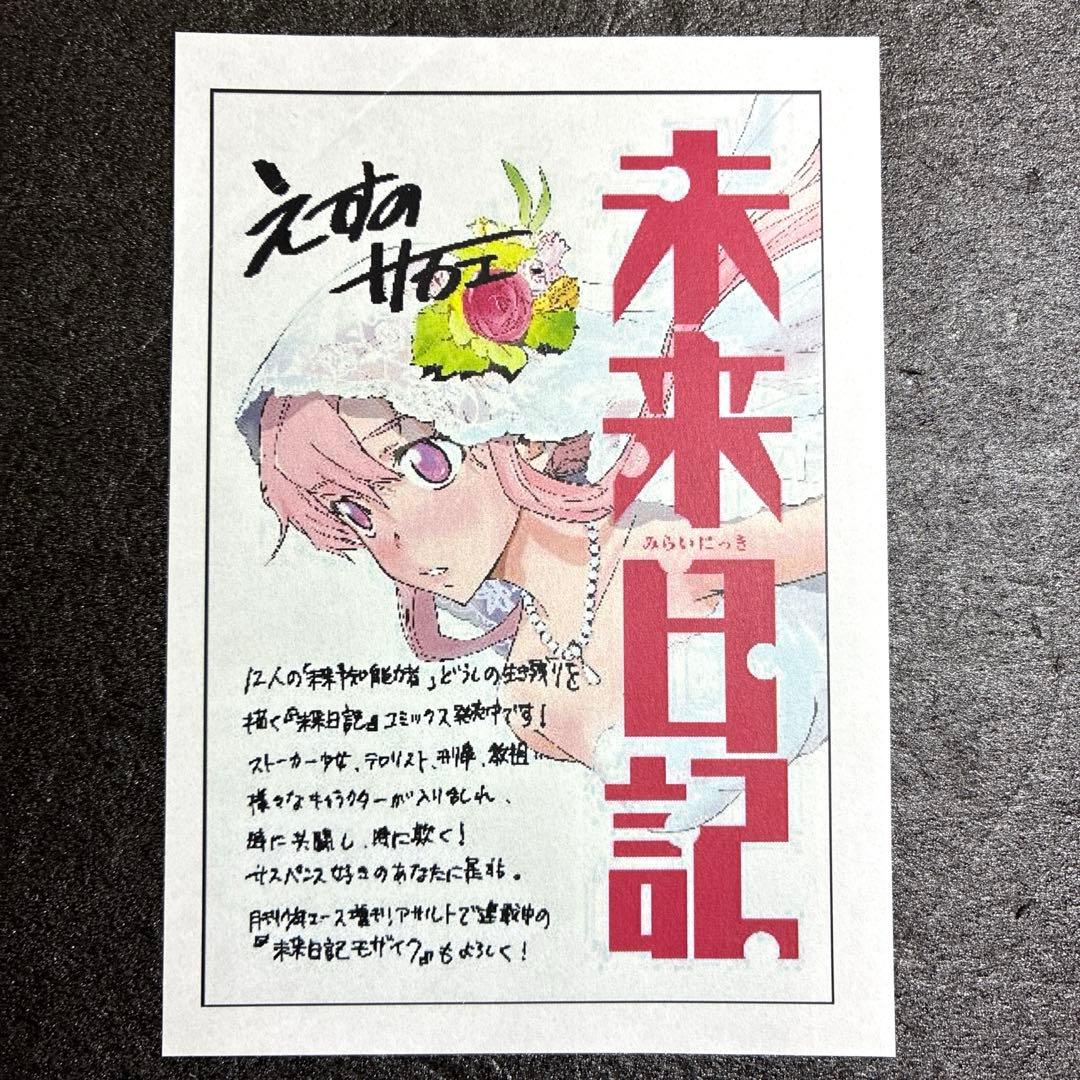 えすの
サカエ
未来日記
みらいにっき
12人の「未来予知能力者」どうしの生き残りを
描く『未来日記』コミックス発売中です!
ストーカー少女、テロリスト、刑事、教祖…
様々なキャラクターが入り乱れ、
時に共闘し、時に欺く!
サスペンス好きのあなたに是非。
月刊少年エース増刊アサルトで連載中の
『未来日記モザイク』もよろしく!